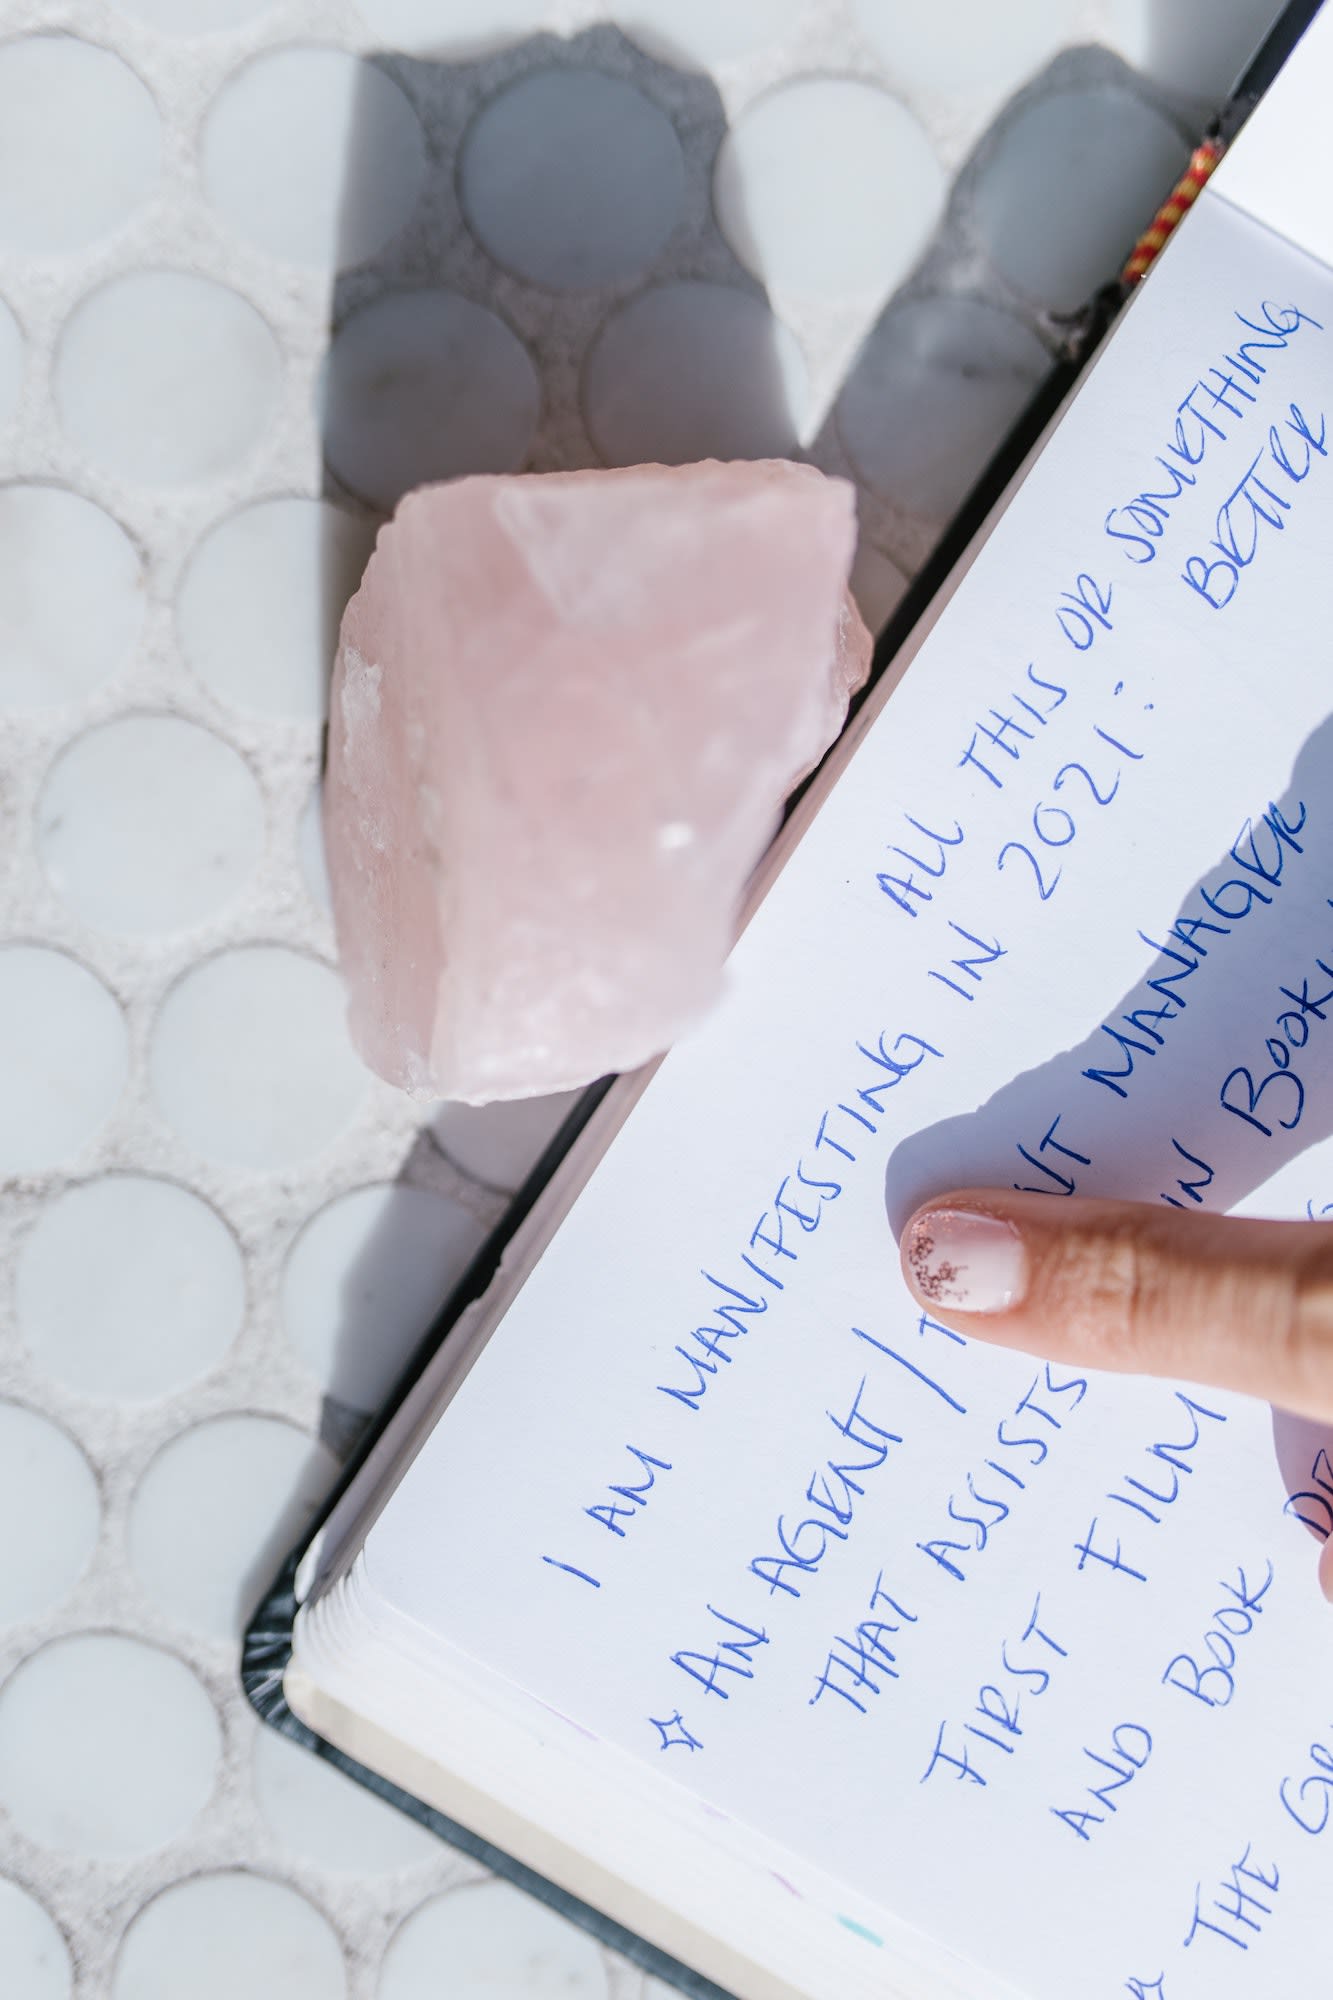 I AM MANIFESTING ALL THIS OR SOMETHING
BETTER
IN 2021:
AN AGENT / MANAGER
THAT ASSISTS IN
FIRST FILM
AND BOOK
THE